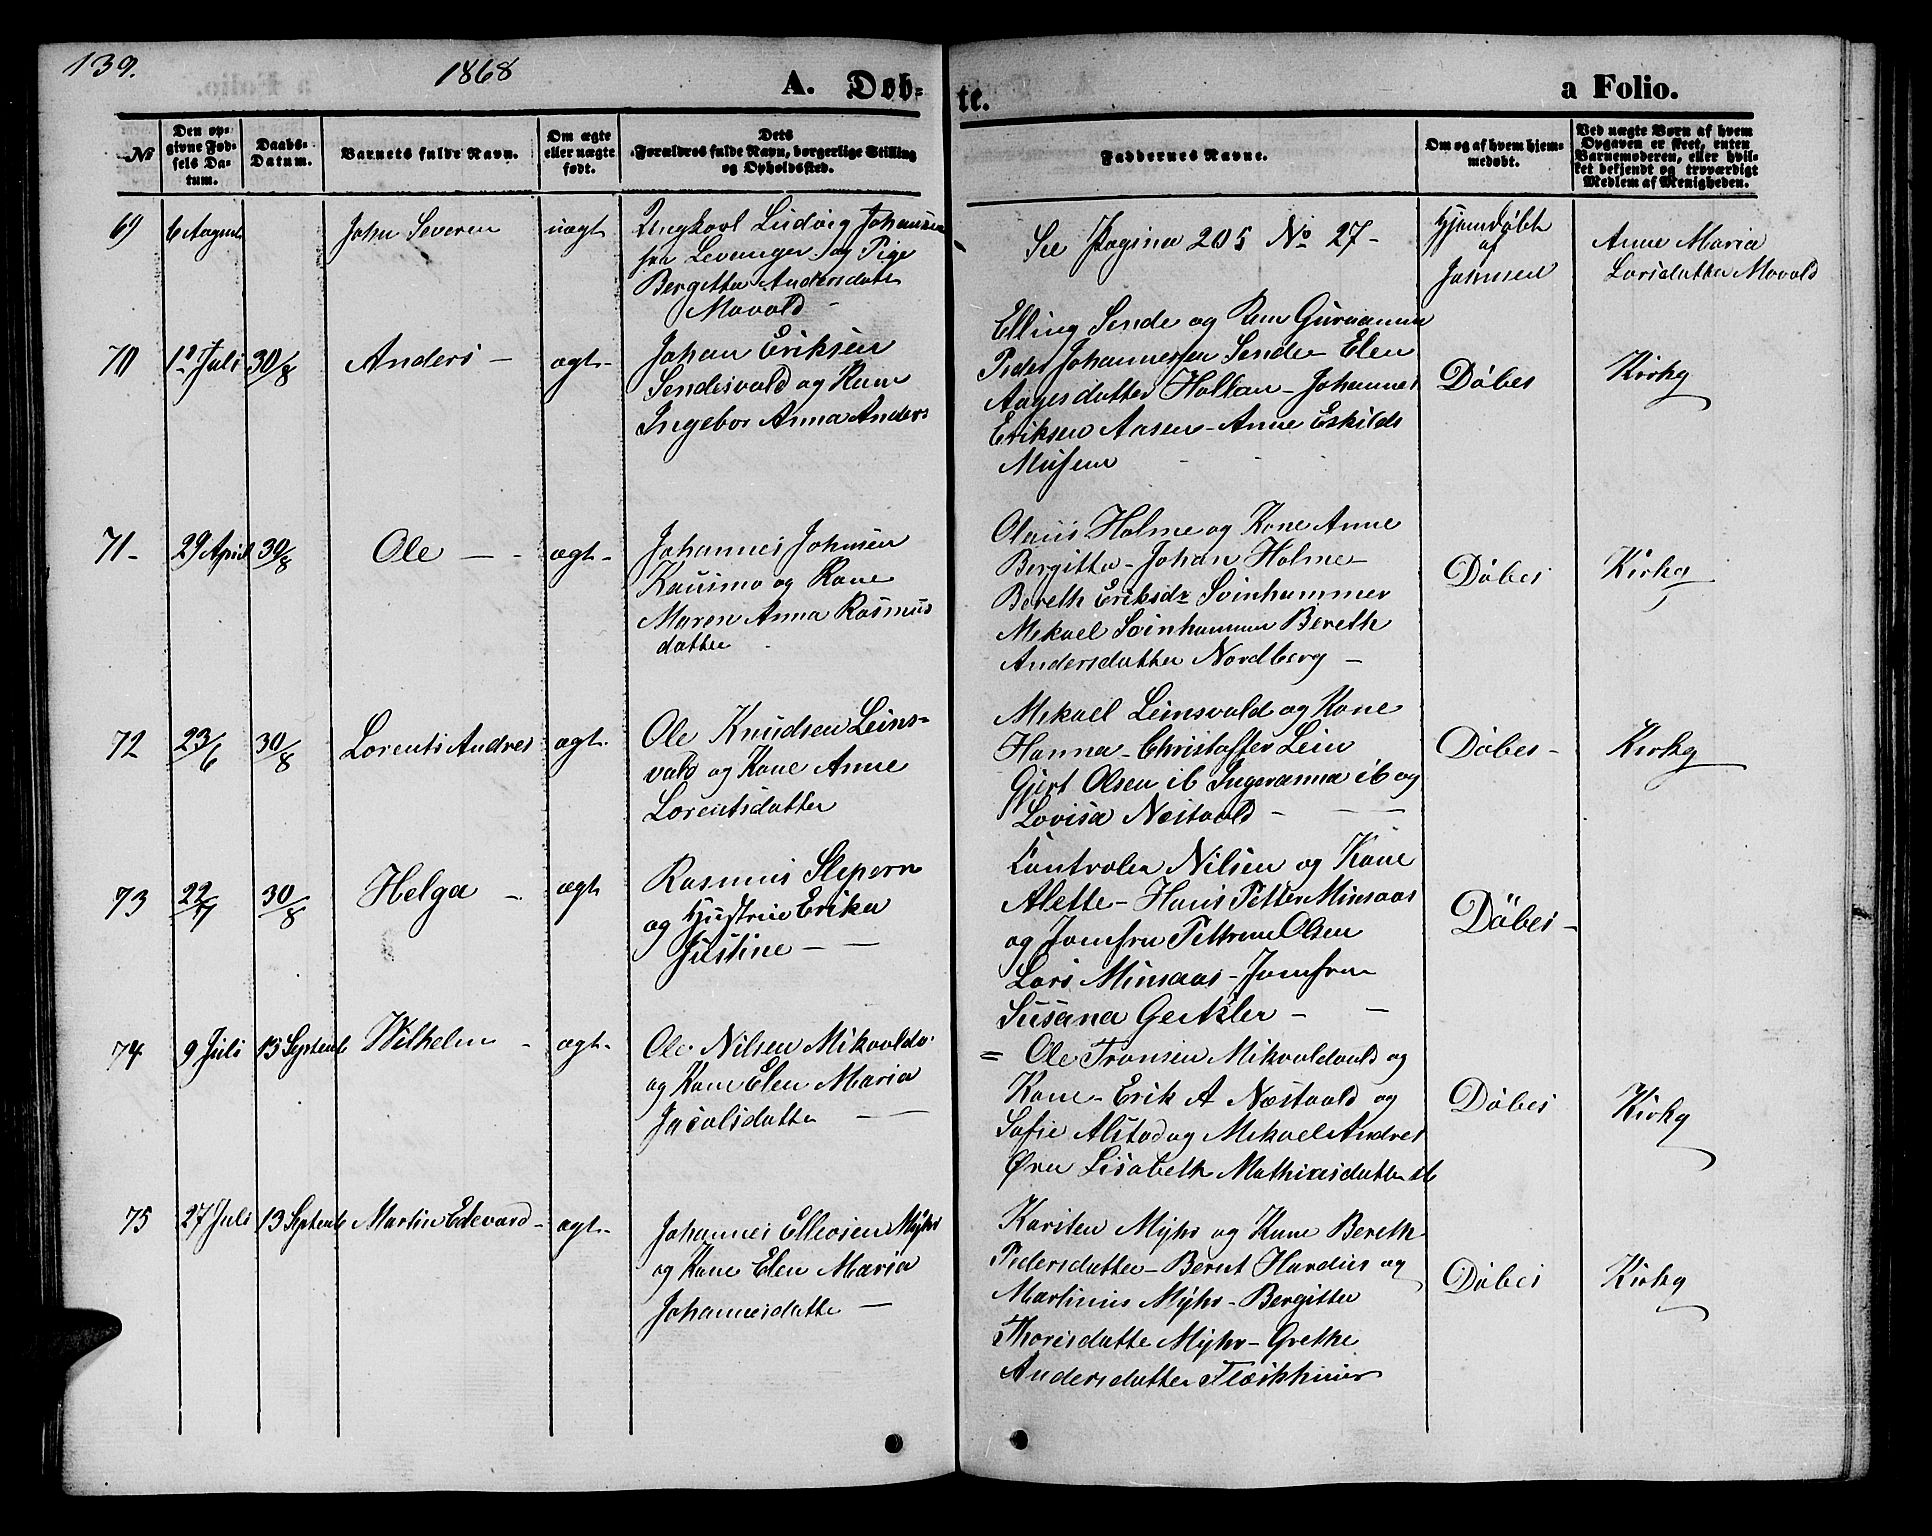 139.
1868
A. Døb-
te.
a Folio.
№
Den op-
givne Fød-
sels Da-
tum.
Daabs-
Datum.
Barnets fulde Navn.
Om ægte
eller uægte
født.
Dets
Forældres fulde Navn, borgerlige Stilling
og Opholdssted.
Faddernes Navne.
Om og af hvem hjem-
medøbt.
Ved uægte Børn af hvem
Opgaven er skeet, enten
Barnemoderen, eller hvil-
ket bekjendt og troværdigt
Medlem af Menigheden.
69
6 August
John Severin
uægt
Ungkarl Ludvig Johansen
fra Levanger og Pige
Bergitta Andersdatte
Movald
See Pagina 205 No 27-
Hjemdøbt
af
Johnsen
Anne Maria
Larsdatter Movald
70
Juli
30/8
Anders -
ægt-
Johan Eriksen
Sendesvald og Kone
Ingebor Anna Anders
Elling Sende og Kone
Peder Johannessen Sende - Elen
Aagesdatter - Johannes
Eriksen Aasen - Anne Eskilds
Døbes
Kirkg
71-
29 April
30/8
Ole -
ægt-
Johannes Johnsen
og Kone
Maren Anna Rasmus
datter
Olaus Holme og Kone Anne
Bergitta - Johan Holme -
Bereth Eriksdr Svinhammer
Mekael Svinhammer Bereth
Andersdatter Nordberg -
Døbes
Kirkg
72
23/6
30/8
Lorents Andres
ægt.
Ole Knudsen Leins-
vald og Kone Anne
Lorentsdatter
Mekael Leinsvald og Kone
Hanna - Christoffer Lein
Gjert Olsen ib Ingeranna ib og
Lovisa Næstvold -
Døbes -
Kirkg
73
30/8
Helga -
ægt
Rasmus
og Hustrue Erika
Justine -
Nilsen og Kone
Alette - Hans Petter Minsaas
og Jomfru Petrine Olsen
Lars Minsaas - Jomfru
Susana
Døbes -
74
9 Juli
13 Septemb
Wilhelm -
ægt-
Ole Nilsen
og Kone Elen Maria
Jacobsdatte -
= Ole Tronsen og
Kone - Erik A Næstvold og
Sofie Alstad og Mekael Andres
Øren Lisabeth Mathiasdatter ib
Døbes
Kirkg
75
27 Juli
13 Septemb
Martin Edevard -
ægt-
Johannes Ellevsen Myhr
og Kone Elen Maria
Johannesdatte -
Karsten Myhr og Kone Bereth
Pedersdatter - Bernt og
Martinus Myhr - Bergitta
Thoresdatte Myhr - Grethe
Andersdatter
Døbes
Kirkg